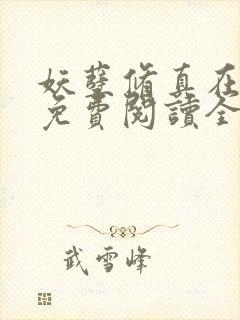 妖孽脩真在
免費閱讀全
武雪峰